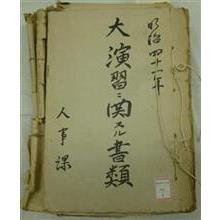 明治四十一年
大演習ニ関スル書類
人事課